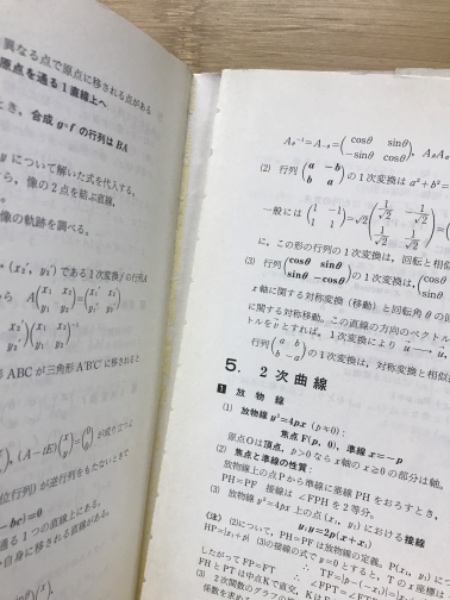 異なる点で原点に移される点がある
原点を通る1直線上へ
とき、合成 g∘f の行列は BA
y について解いた式を代入する。
ら、像の2点を結ぶ直線，
像の軌跡を調べる。
(x₁′, y₁′) である1次変換 f の行列A
ら A(x₁ x₂ / y₁ y₂)=(x₁′ x₂′ / y₁′ y₂′)
x₂′ / y₂′)(x₁ x₂ / y₁ y₂)⁻¹
形 ABC が三角形 A′B′C′ に移されると
), (A−tE)(x / y)=(0 / 0) が成り立つよ
位行列) が逆行列をもたないとき で
−bc)=0
通る1つの直線上にある。
自身に移される直線がある。
A_θ⁻¹=A₋θ=(cosθ sinθ / −sinθ cosθ),
(2) 行列 (a −b / b a) の1次変換は a²+b²=
一般には (1 −1 / 1 1)=√2(1/√2 −1/√2 / 1/√2 1/√2)=
に，この形の行列の1次変換は，回転と相似
(3) 行列(cosθ sinθ / sinθ −cosθ)の1次変換は，(cosθ / sinθ
x軸に関する対称変換(移動)と回転角θの
に関する対称移動。この直線の方向のベクトル
トルを v とすれば，1次変換により u→u,
行列(a b / b −a)の1次変換は，対称変換と相似
5. 2次曲線
1 放物線
(1) 放物線 y²=4px (p≠0)：
焦点 F(p, 0)，準線 x=−p
原点Oは頂点，p>0 なら x軸の x≧0 の部分は軸。
(2) 焦点と準線の性質：
放物線上の点Pから準線に垂線 PH をおろすとき，
PH=PF 接線は ∠FPH を2等分。
(3) 放物線 y²=4px 上の点 (x₁, y₁) における接線
y₁y=2p(x+x₁)
(注) (2)について，PH=PF は放物線の定義。P(x₁, y₁)に
HP=|x₁+p| (3)の接線の式で y=0 とすると，Tのx座標は
したがって FP=FT ∴ TF=|p−(−x₁)|=
FH と PT は中点Kで直交，∴ ∠FPT=∠FTP
(3) 2次関数のグラフの
係数を求める